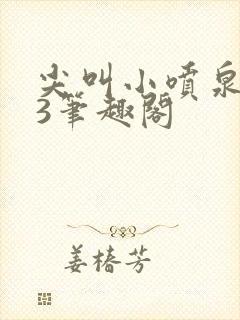 尖叫小喷泉
3笔趣阁
姜椿芳